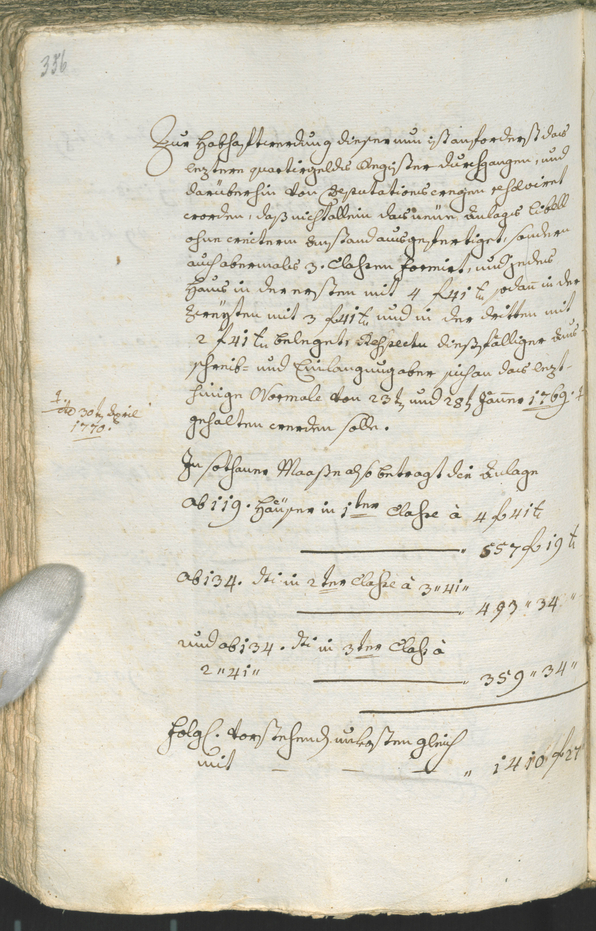 356
Zur Habhaftwerdung dieser nun ist anforderst das
leztere quartirgelds Register durchgangen, und
darüberhin von Deputations wegen resolviret
worden, daß nicht allein das neüe Anlags Libell
ohne weiterm Anstand ausgefertiget, sondern
auch abermals 3. Classen formirt, und jedes
Haus in der ersten mit 4 f 41 x, sodan in der
zweyten mit 3 f 41 x und in der dritten mit
2 f 41 x beleget, Respectu dießfälliger Aus-
schreib- und Einlangung aber sich an das lezt-
hinige Normale von 23t und 28t Jäner 1769.
gehalten werden solle.
dto 30t April
1770.
In sothaner Maaße also betragt die Anlage
ab 119. Häuser in 1ter Classe à 4 f 41 x
557 f 19 x
ab 134. dti in 2ter Classe à 3 " 41 "
493 " 34 "
und ab 134. dti in 3ter Class à
2 " 41 "
359 " 34 "
folgl. vorstehend unkosten gleich
mit " 1410 f 27